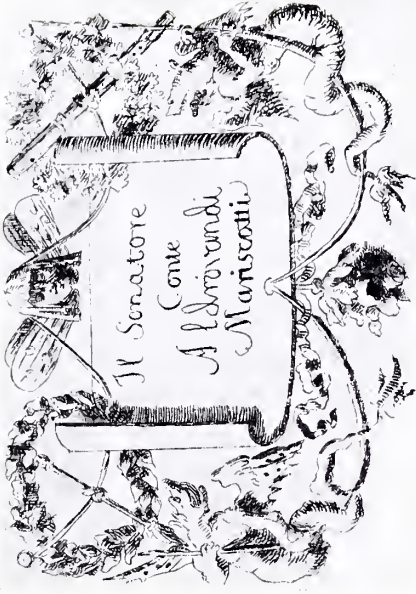 Il Senatore
Conte
Aldrovandi
Mariscotti